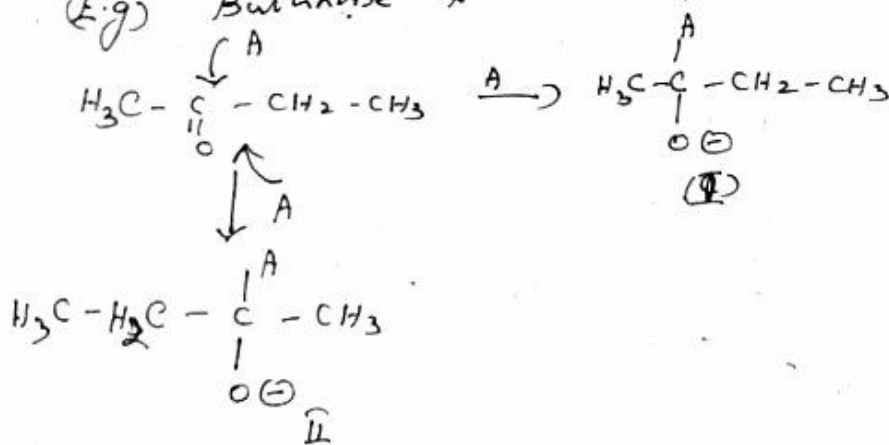 (E.g) Butanone
A A
H3C - C - CH2 - CH3 A H3C - C - CH2 - CH3
|| |
O O ⊖
A (I)
A
H3C - H2C - C - CH3
|
O ⊖
II